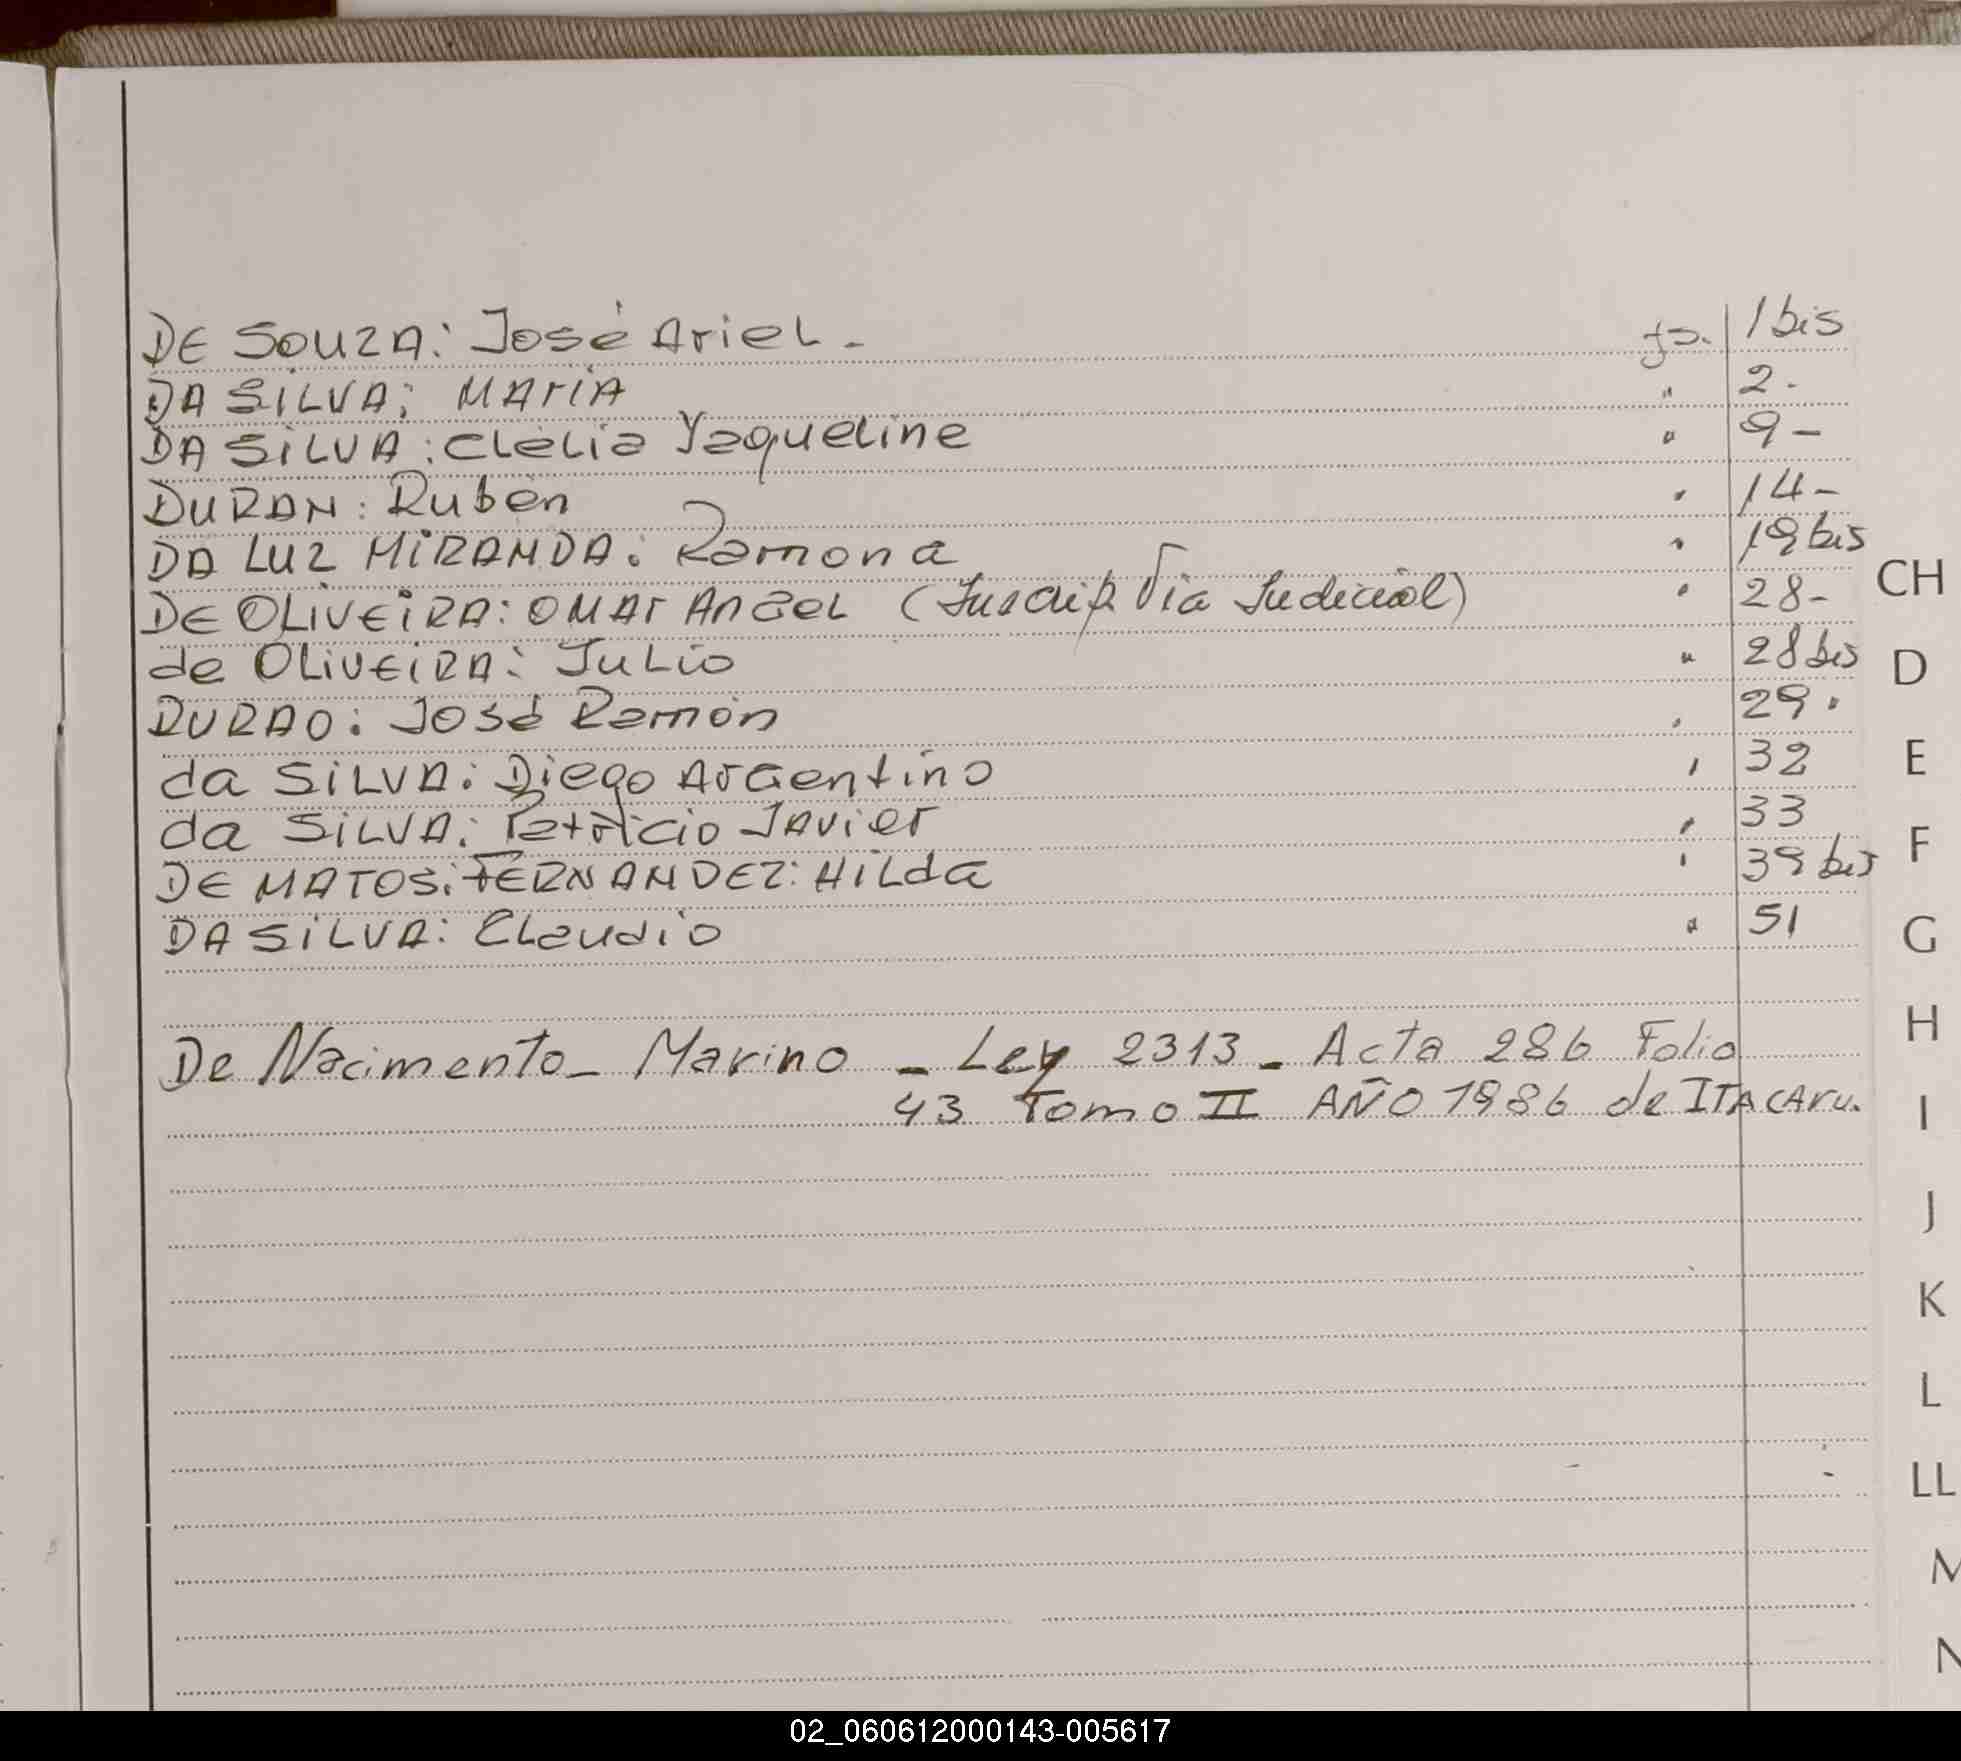 DE SOUZA: José Ariel - fs. 1 bis
DA SILVA: MAriA " 2 -
DA SILVA: Clelia Yaqueline " 9 -
DURAN: Rubén " 14 -
DA LUZ MIRANDA: Ramona " 19 bis
DE OLIVEIRA: OMAr AnGeL (Inscrip Via Judicial) " 28 -
de OLIVEIRA: JuLio " 28 bis
DURAO: José Ramón " 29 .
da SILVA: Diego ArGentino " 32
da SILVA: Patricio JAvier " 33
DE MATOS: FERNANDEZ: HiLda " 39 bis
DA SILVA: CLaudio " 51
De Nacimento - Marino - Ley 2313 - Acta 286 Folio
43 Tomo II AÑO 1986 de ITACAru.
CH
D
E
F
G
H
I
J
K
L
LL
M
N
02_060612000143-005617